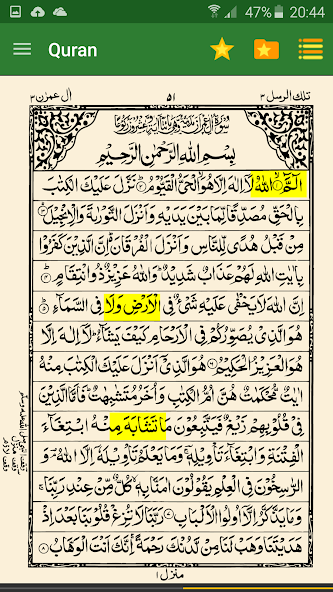 47% 20:44
Quran
تلك الرسل ٣ ٥١ اٰل عمرٰن ٣
بِسْمِ اللّٰهِ الرَّحْمٰنِ الرَّحِيْمِ
الٓمَّٓ ۙ﴿۱﴾ اللّٰهُ لَاۤ اِلٰهَ اِلَّا هُوَ الْحَىُّ الْقَيُّوْمُ ؕ﴿۲﴾ نَزَّلَ عَلَيْكَ الْكِتٰبَ
بِالْحَقِّ مُصَدِّقًا لِّمَا بَيْنَ يَدَيْهِ وَاَنْزَلَ التَّوْرٰىةَ وَالْاِنْجِيْلَ ۙ﴿۳﴾
مِنْ قَبْلُ هُدًى لِّلنَّاسِ وَاَنْزَلَ الْفُرْقَانَ ؕ اِنَّ الَّذِيْنَ كَفَرُوْا
بِاٰيٰتِ اللّٰهِ لَهُمْ عَذَابٌ شَدِيْدٌ ؕ وَاللّٰهُ عَزِيْزٌ ذُو انْتِقَامٍ ﴿۴﴾
اِنَّ اللّٰهَ لَا يَخْفٰى عَلَيْهِ شَىْءٌ فِى الْاَرْضِ وَلَا فِى السَّمَآءِ ؕ﴿۵﴾
هُوَ الَّذِىْ يُصَوِّرُكُمْ فِى الْاَرْحَامِ كَيْفَ يَشَآءُ ؕ لَاۤ اِلٰهَ اِلَّا
هُوَ الْعَزِيْزُ الْحَكِيْمُ ﴿۶﴾ هُوَ الَّذِىْۤ اَنْزَلَ عَلَيْكَ الْكِتٰبَ مِنْهُ
اٰيٰتٌ مُّحْكَمٰتٌ هُنَّ اُمُّ الْكِتٰبِ وَاُخَرُ مُتَشٰبِهٰتٌ ؕ فَاَمَّا الَّذِيْنَ
فِىْ قُلُوْبِهِمْ زَيْغٌ فَيَتَّبِعُوْنَ مَا تَشَابَهَ مِنْهُ ابْتِغَآءَ
الْفِتْنَةِ وَابْتِغَآءَ تَاْوِيْلِهٖ ۚ وَمَا يَعْلَمُ تَاْوِيْلَهٗۤ اِلَّا اللّٰهُ ؔۘ وَ
الرّٰسِخُوْنَ فِى الْعِلْمِ يَقُوْلُوْنَ اٰمَنَّا بِهٖ ۙ كُلٌّ مِّنْ عِنْدِ رَبِّنَا ۚ
وَمَا يَذَّكَّرُ اِلَّاۤ اُولُوا الْاَلْبَابِ ﴿۷﴾ رَبَّنَا لَا تُزِغْ قُلُوْبَنَا بَعْدَ اِذْ
هَدَيْتَنَا وَهَبْ لَنَا مِنْ لَّدُنْكَ رَحْمَةً ۚ اِنَّكَ اَنْتَ الْوَهَّابُ ﴿۸﴾
منزل ۱